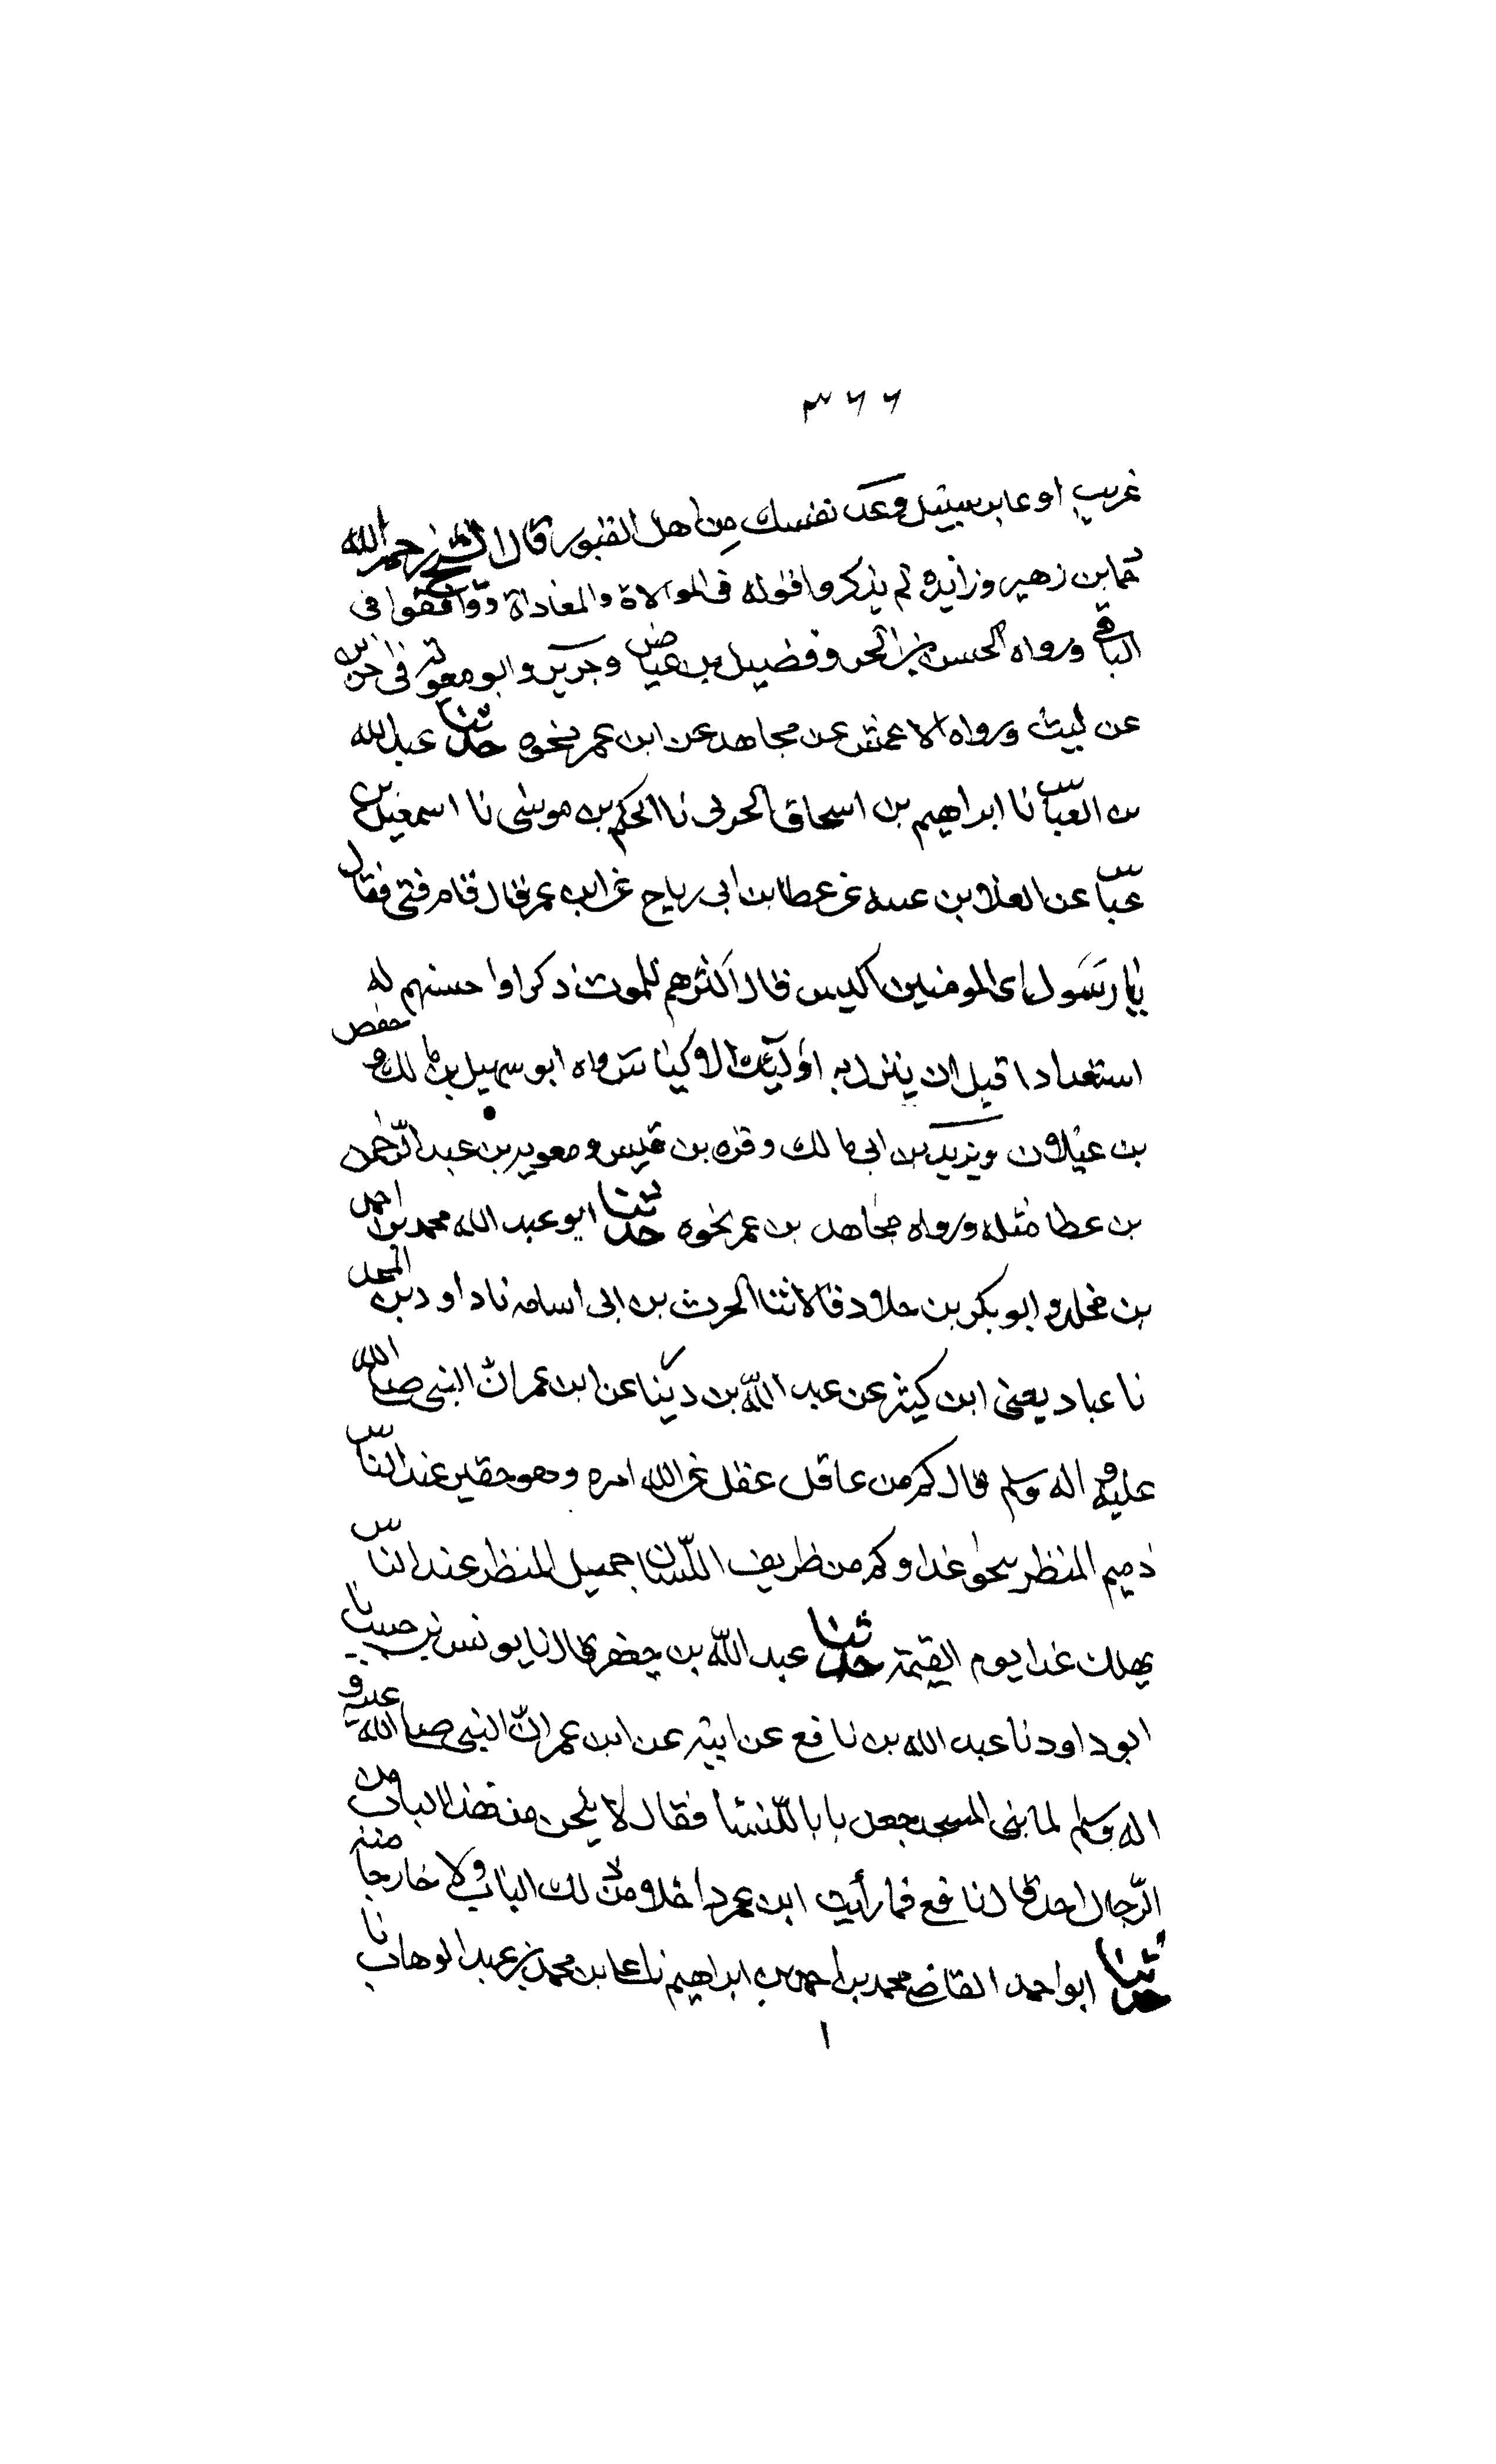 ٣٦٦
غريب او عابر سبيل وعد نفسك من اهل القبور قال الشيخ رحمه الله
حما بن زهير وزايده لم يذكروا قوله فى الموالاة والمعاداة ووافقوا فى
الباقى ورواه الحسن بن الحر وفضيل بن عياض وجرير وابو معوية فى اخرين
عن ليث ورواه الاعمش عن مجاهد عن ابن عمر نحوه حدثنا عبد الله
بن العباس نا ابراهيم بن اسحاق الحربى نا الحكم بن موسى نا اسمعيل بن
عباس عن العلا بن عن عطا بن ابى رباح عن ابن عمر قال قام فتى فقال
يا رسول اى المومنين اكيس قال اكثرهم للموت ذكرا واحسنهم له
استعدادا قبل ان ينزل به اوليك الاكياس رواه ابو سهيل بن مالك و حفص
بن غيلان ويزيد بن ابى مالك وقره بن قيس ومعويه بن عبد الرحمن
بن عطا مثله ورواه مجاهد بن عمر نحوه حدثنا ابو عبد الله محمد بن احمد
بن مخلد و ابو بكر بن خلاد قالا ثنا الحرث بن ابى اسامه نا داود بن المحبر
نا عباد يعنى ابن كثير عن عبد الله بن دينا عن ابن عمر ان النبى صلى الله
عليه و اله وسلم قال كم من عاقل عقل عن الله امره وهو حقير عند الناس
ذميم المنظر ينجوا غدا وكم من ظريف اللسان جميل المنظر عند الناس
يهلك غدا يوم القيمة حدثنا عبد الله بن جعفر قال نا يونس بن حبيب نا
ابو داود نا عبد الله بن نافع عن ابيه عن ابن عمر ان النبى صلى الله عليه و
اله وسلم لما بنى المسجد جعل بابا للنسا فقال لا يلجن من هذا الباب من
الرجال احد قال نافع فما رأيت ابن عمر داخلا من ذلك الباب ولا خارجا منه
حدثنا ابو احمد القاضى محمد بن احمد بن ابراهيم نا على بن محمد بن عبد الوهاب نا
١